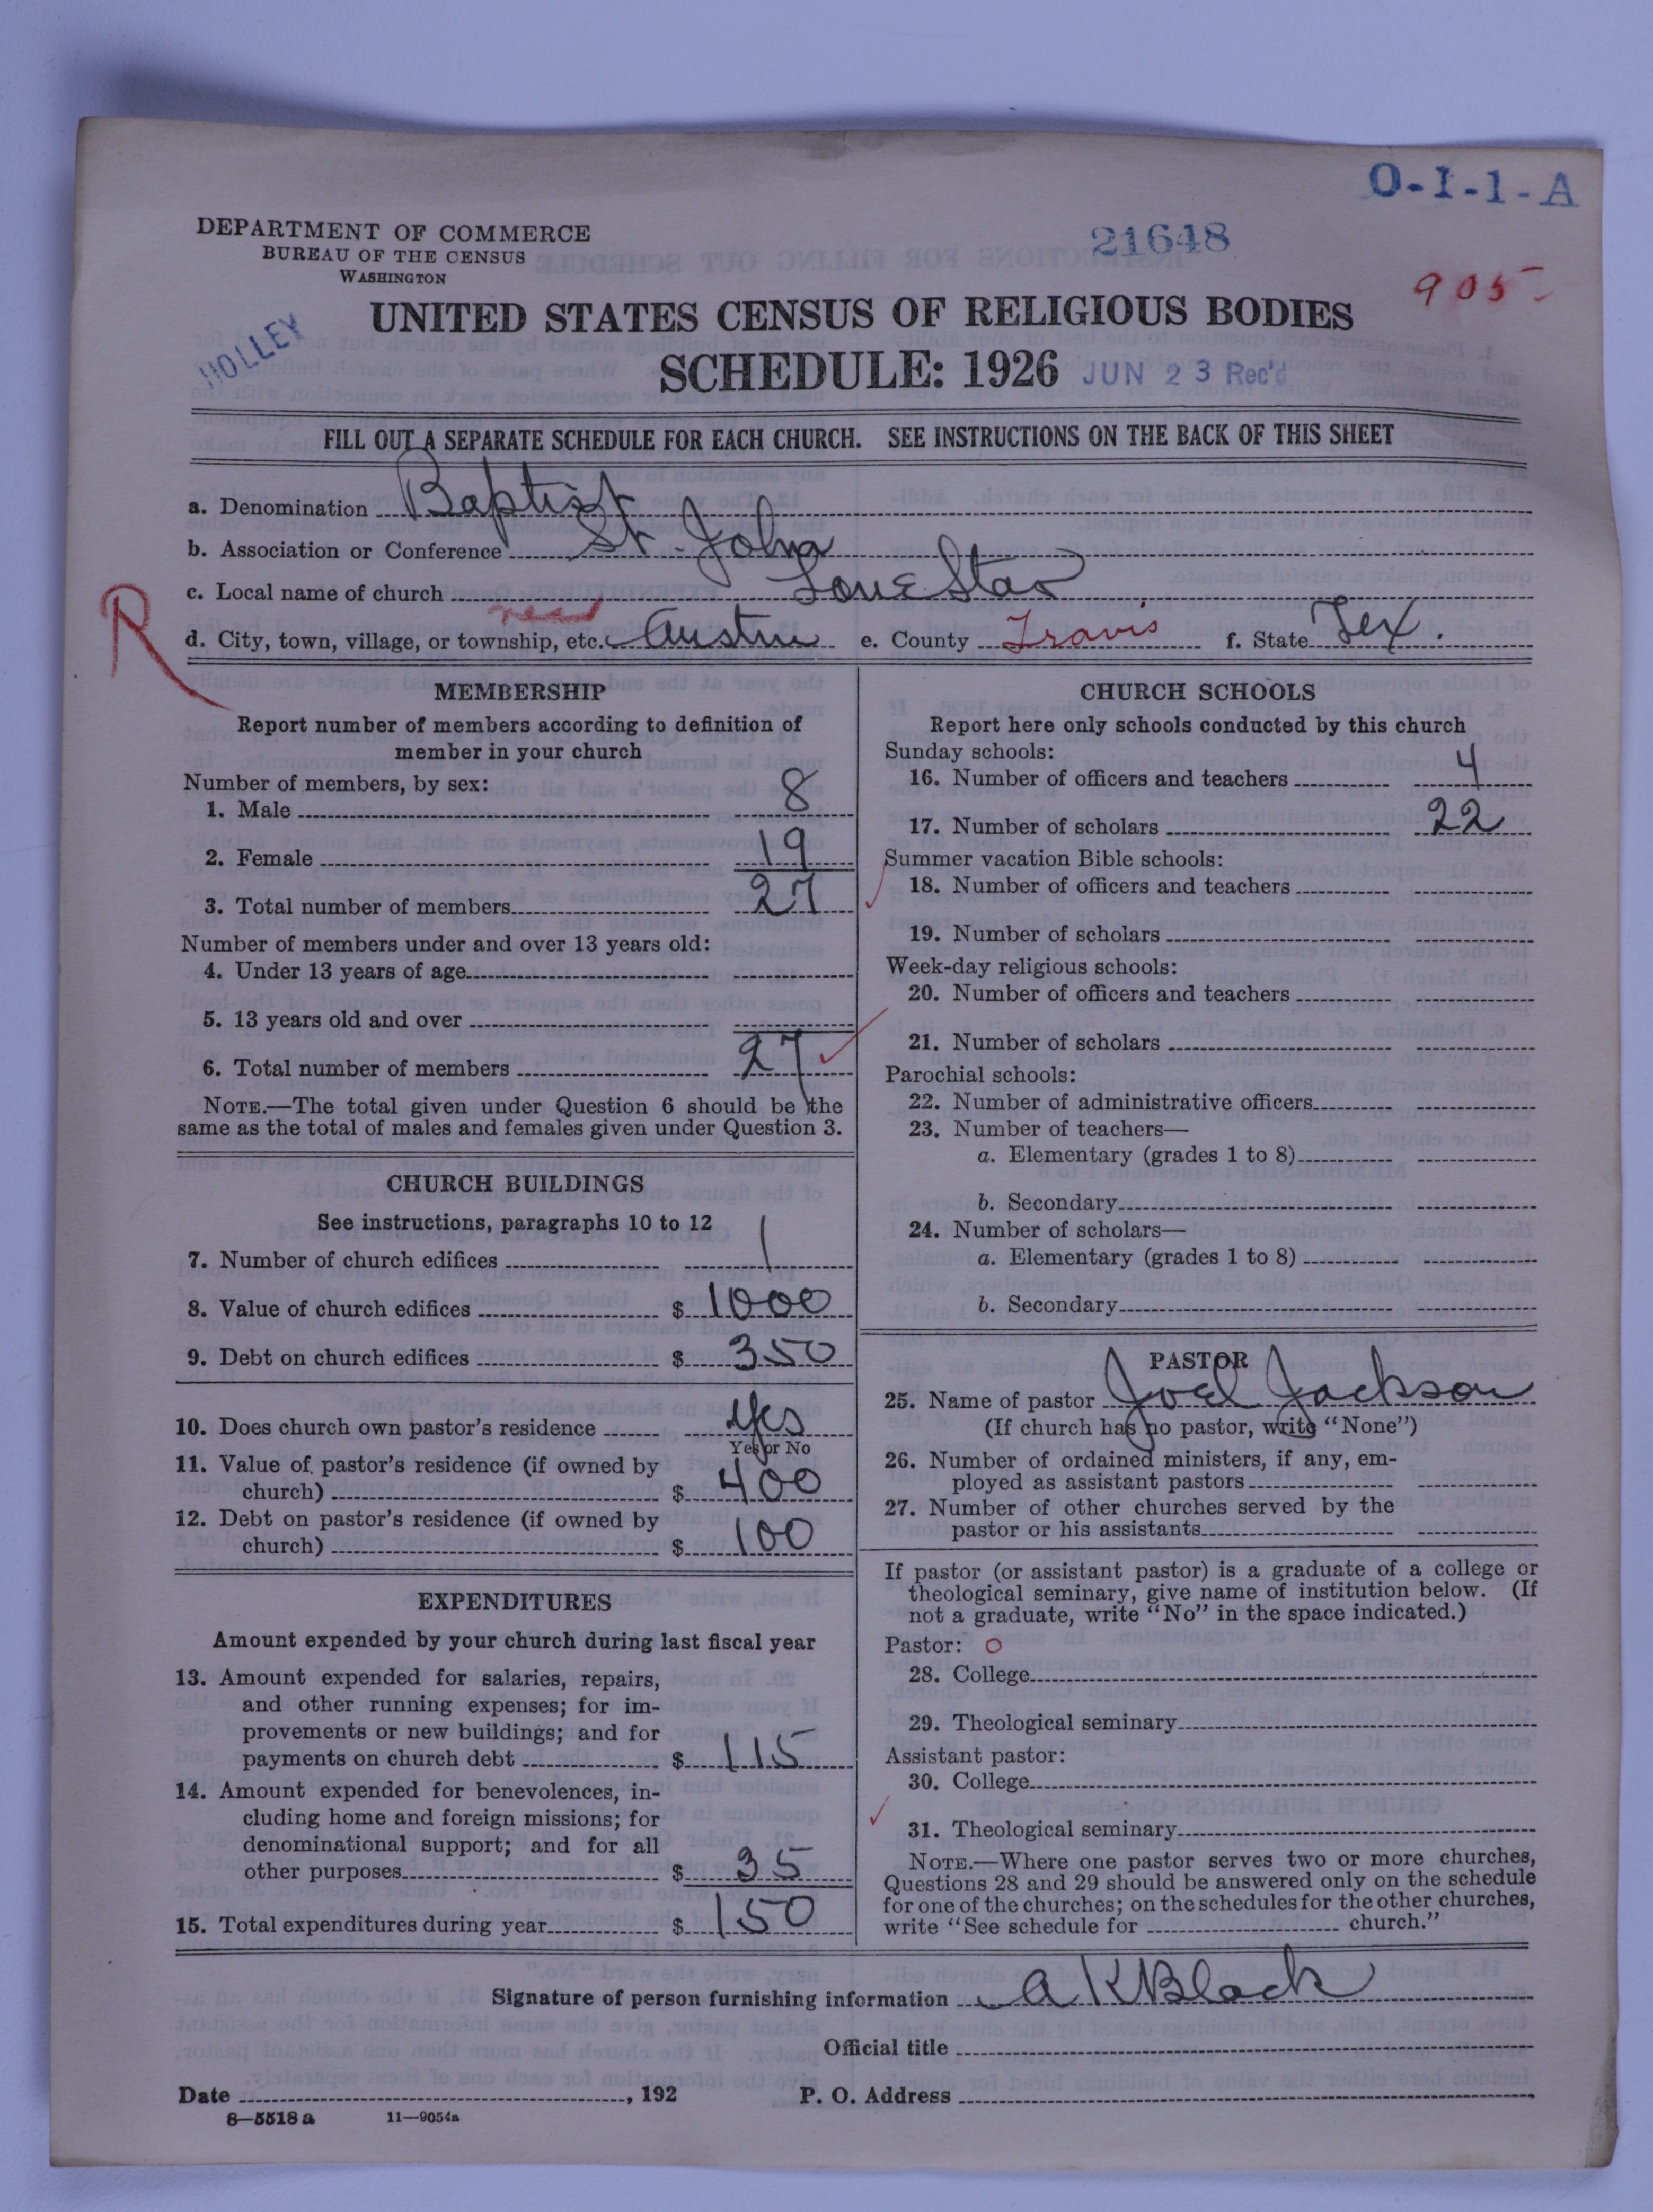 O-I-1-A
DEPARTMENT OF COMMERCE
BUREAU OF THE CENSUS
WASHINGTON
21648
905-
HOLLEY
UNITED STATES CENSUS OF RELIGIOUS BODIES
SCHEDULE: 1926 JUN 23 Rec'd
FILL OUT A SEPARATE SCHEDULE FOR EACH CHURCH. SEE INSTRUCTIONS ON THE BACK OF THIS SHEET
a. Denomination Baptist
b. Association or Conference St. John
c. Local name of church Lone Star
R
near
d. City, town, village, or township, etc. Austin e. County Travis f. State Tex.
MEMBERSHIP
Report number of members according to definition of
member in your church
Number of members, by sex:
1. Male 8
2. Female 19
3. Total number of members 27
Number of members under and over 13 years old:
4. Under 13 years of age
5. 13 years old and over
6. Total number of members 27
NOTE.—The total given under Question 6 should be the
same as the total of males and females given under Question 3.
CHURCH BUILDINGS
See instructions, paragraphs 10 to 12
7. Number of church edifices 1
8. Value of church edifices $ 1000
9. Debt on church edifices $ 350
10. Does church own pastor's residence Yes
Yes or No
11. Value of pastor's residence (if owned by
church) $ 400
12. Debt on pastor's residence (if owned by
church) $ 100
EXPENDITURES
Amount expended by your church during last fiscal year
13. Amount expended for salaries, repairs,
and other running expenses; for im-
provements or new buildings; and for
payments on church debt $ 115
14. Amount expended for benevolences, in-
cluding home and foreign missions; for
denominational support; and for all
other purposes $ 35
15. Total expenditures during year $ 150
CHURCH SCHOOLS
Report here only schools conducted by this church
Sunday schools:
16. Number of officers and teachers 4
17. Number of scholars 22
Summer vacation Bible schools:
18. Number of officers and teachers
19. Number of scholars
Week-day religious schools:
20. Number of officers and teachers
21. Number of scholars
Parochial schools:
22. Number of administrative officers
23. Number of teachers—
a. Elementary (grades 1 to 8)
b. Secondary
24. Number of scholars—
a. Elementary (grades 1 to 8)
b. Secondary
PASTOR
25. Name of pastor Joel Jackson
(If church has no pastor, write "None")
26. Number of ordained ministers, if any, em-
ployed as assistant pastors
27. Number of other churches served by the
pastor or his assistants
If pastor (or assistant pastor) is a graduate of a college or
theological seminary, give name of institution below. (If
not a graduate, write "No" in the space indicated.)
Pastor: O
28. College
29. Theological seminary
Assistant pastor:
30. College
31. Theological seminary
NOTE.—Where one pastor serves two or more churches,
Questions 28 and 29 should be answered only on the schedule
for one of the churches; on the schedules for the other churches,
write "See schedule for church."
Signature of person furnishing information A K Black
Official title
Date , 192 P. O. Address
8—5518 a 11—9054a